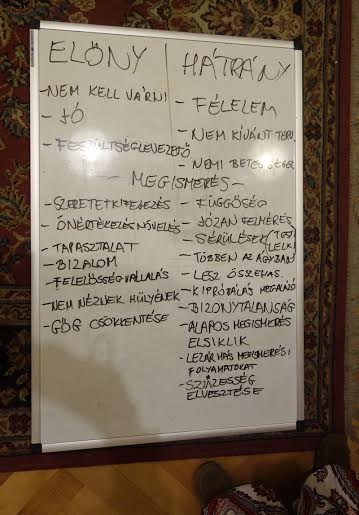 ELŐNY
- NEM KELL VÁRNI
- JÓ
- FESZÜLTSÉGLEVEZETŐ
- MEGISMERÉS -
- SZERETETKIFEJEZÉS
- ÖNÉRTÉKELÉS NÖVELÉS
- TAPASZTALAT
- BIZALOM
- FELELŐSSÉGVÁLLALÁS
- NEM NÉZNEK HÜLYÉNEK
- GŐG CSÖKKENTÉSE
HÁTRÁNY
- FÉLELEM
- NEM KÍVÁNT TERH.
- NEMI BETEGSÉGEK
- FÜGGŐSÉG
- JÓZAN FELMÉRÉS
- SÉRÜLÉSEK (TESTI LELKI)
- TÖBBEN AZ ÁGYBAN
- LESZ ÖSSZEHAS.
- KIPRÓBÁLÁS MEGALÁZÓ
- BIZONYTALANSÁG
- ALAPOS MEGISMERÉS
ELSIKLIK
- LEZÁR MÁS MEGISMERÉSI
FOLYAMATOKAT
- SZÜZESSÉG
ELVESZTÉSE